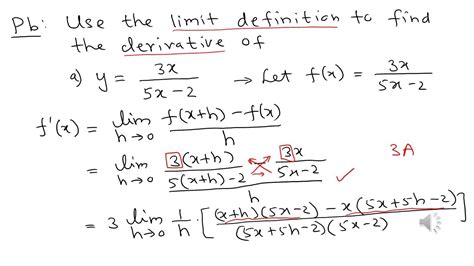 Pb: Use the limit definition to find
the derivative of
a) y = 3x / (5x-2) → Let f(x) = 3x / (5x-2)
f'(x) = lim h→0 (f(x+h) - f(x)) / h
= lim h→0 (3(x+h) / (5(x+h)-2) 3x / (5x-2)) / h ✓ 3A
= 3 lim h→0 1/h · [((x+h)(5x-2) - x(5x+5h-2)) / ((5x+5h-2)(5x-2))]